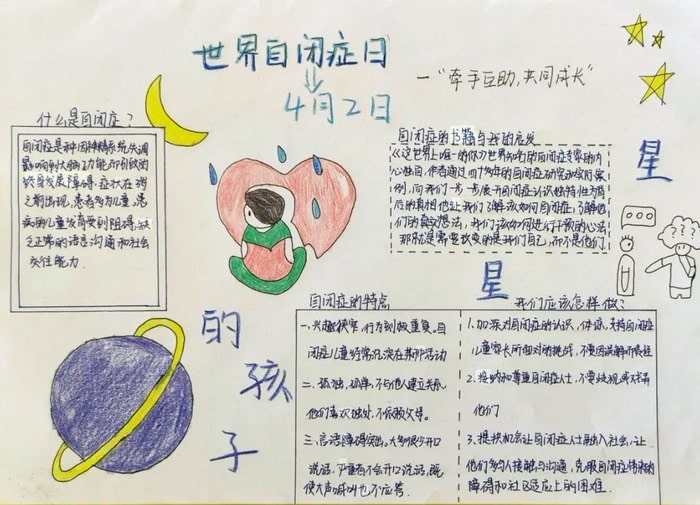 世界自闭症日
4月2日
一"牵手互助，共同成长"
什么是自闭症？
自闭症是种因神精系统失调
影响到大脑功能而引致的
终身发展障碍，症状在3岁
之前出现，患者多为儿童，患
病的儿童发育受到阻碍，缺
乏正常的语言沟通和社会
交往能力
自闭症的书籍与我的感发
《这世上唯一的你》世界知名的自闭症专家的内
心独白，作者通过四十多年的自闭症研究
例，向我们一步一步展开自闭症认识独特性为背
后的真相他让我们了解该如何自闭症，了解他
们的真实想法，我们该如何进行干预的心法
那就是需要改变的是我们自己，而不是他们
星
星
的
孩
子
自闭症的特点
一、兴趣狭窄，行为刻板重复。自
闭症儿童经常沉浸在某种活动
二、孤独，孤单，不与他人建立关系，
他们喜欢独处，不依赖父母。
三、言语障碍突出。大多很少开口
说话，严重者不会开口说话，既
使大声喊叫也不应答。
我们应该怎样做？
1.加深对自闭症的认识，体谅、支持自闭症
儿童家长所面对的挑战，不要因误解而责怪
2.接纳和尊重自闭症人士，不要歧视或
他们
3.提供机会让自闭症人士融入社会，让
他们多与人接触与沟通，克服自闭症带来的
障碍和社区适应上的困难．